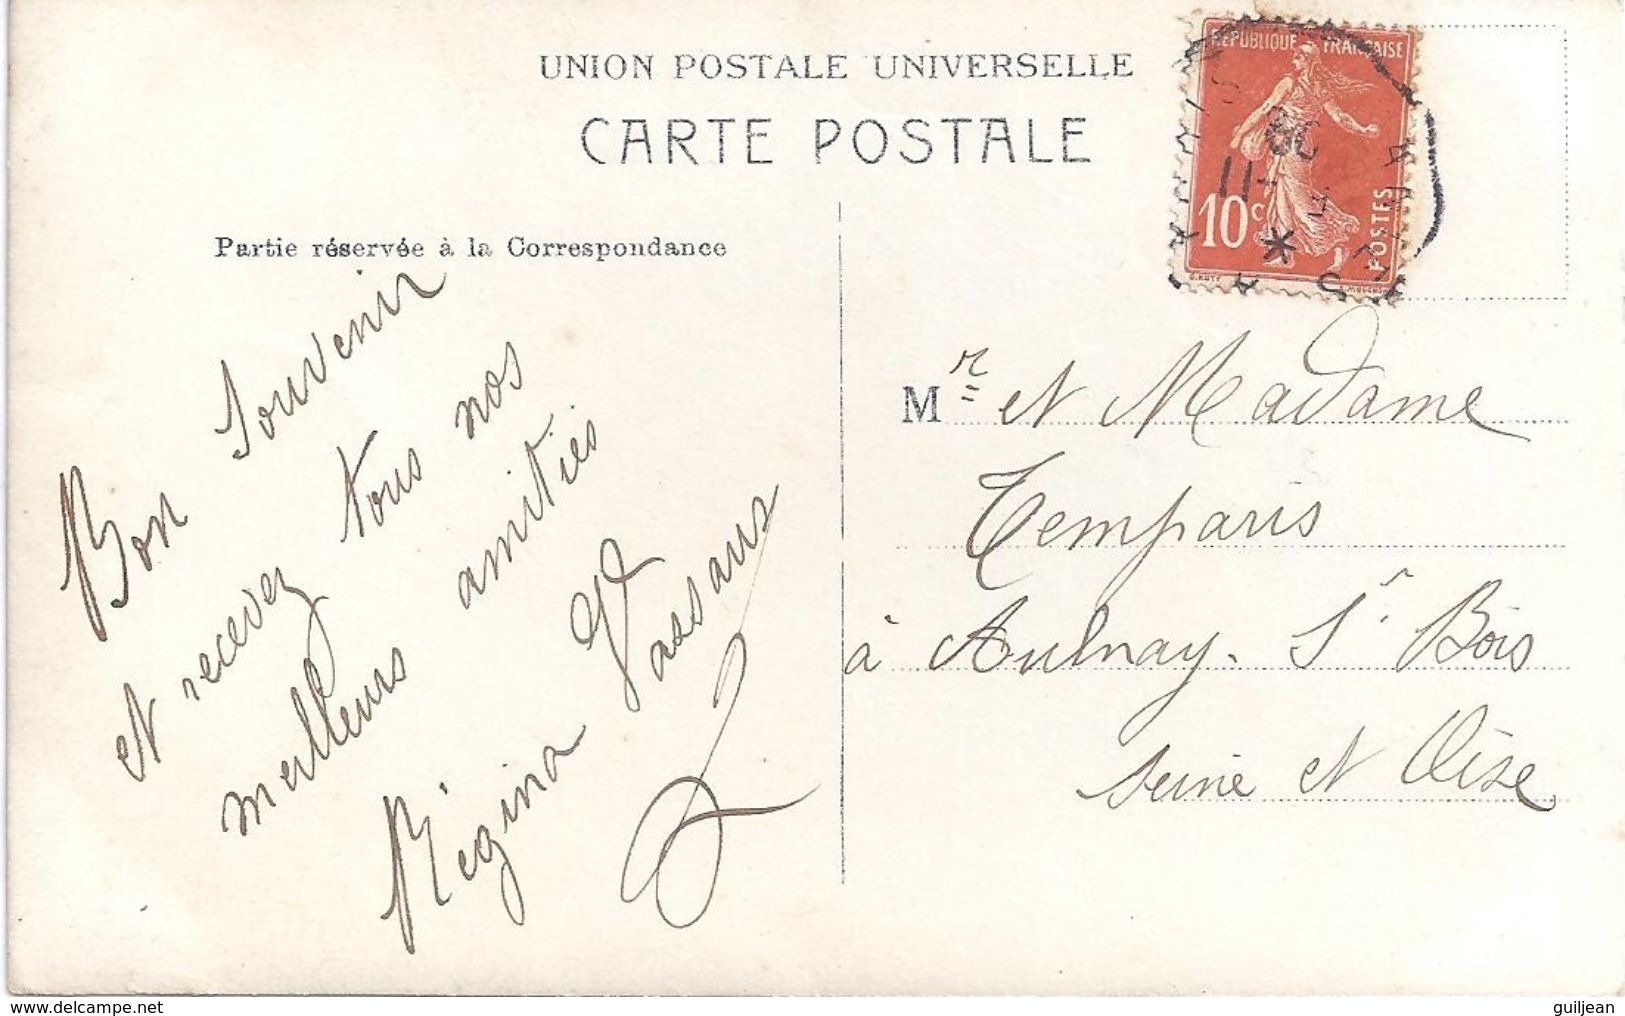 UNION POSTALE UNIVERSELLE
CARTE POSTALE
REPUBLIQUE FRANÇAISE
10c
POSTES
Partie réservée à la Correspondance
Bon Souvenir
et recevez tous nos
meilleurs amitiés
Régina Vassaux
Mr et Madame
Temparis
à Aulnay. S. Bois
Seine et Oise
© www.delcampe.net
guiljean